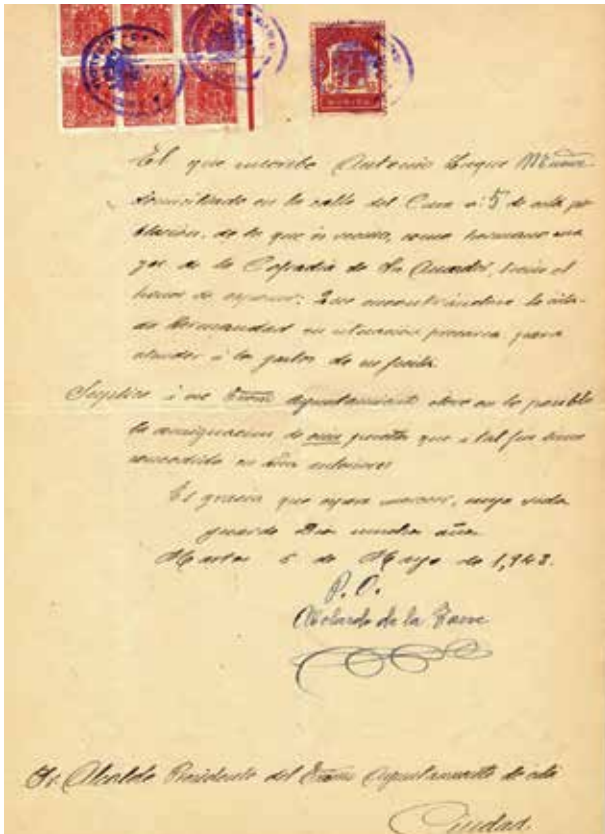 El que suscribe Antonio Luque Muñoz
domiciliado en la calle del Cura nº 5 de esta po
blación, de la que es vecino, como hermano ma
yor de la Cofradía de Sn Amador, tiene el
honor de exponer: Que encontrándose la cita-
da Hermandad en situación precaria para
atender a los gastos de su fiesta.
Suplica a ese Excmo Ayuntamiento eleve en lo posible
la consignación de cien pesetas que a tal fin tiene
concedida en años anteriores
Es gracia que espera merecer, cuya vida
guarde Dios muchos años.
Martos 5 de Mayo de 1,943.
P.O.
Abelardo de la Torre
Sr. Alcalde Presidente del Excmo Ayuntamiento de esta
Ciudad.